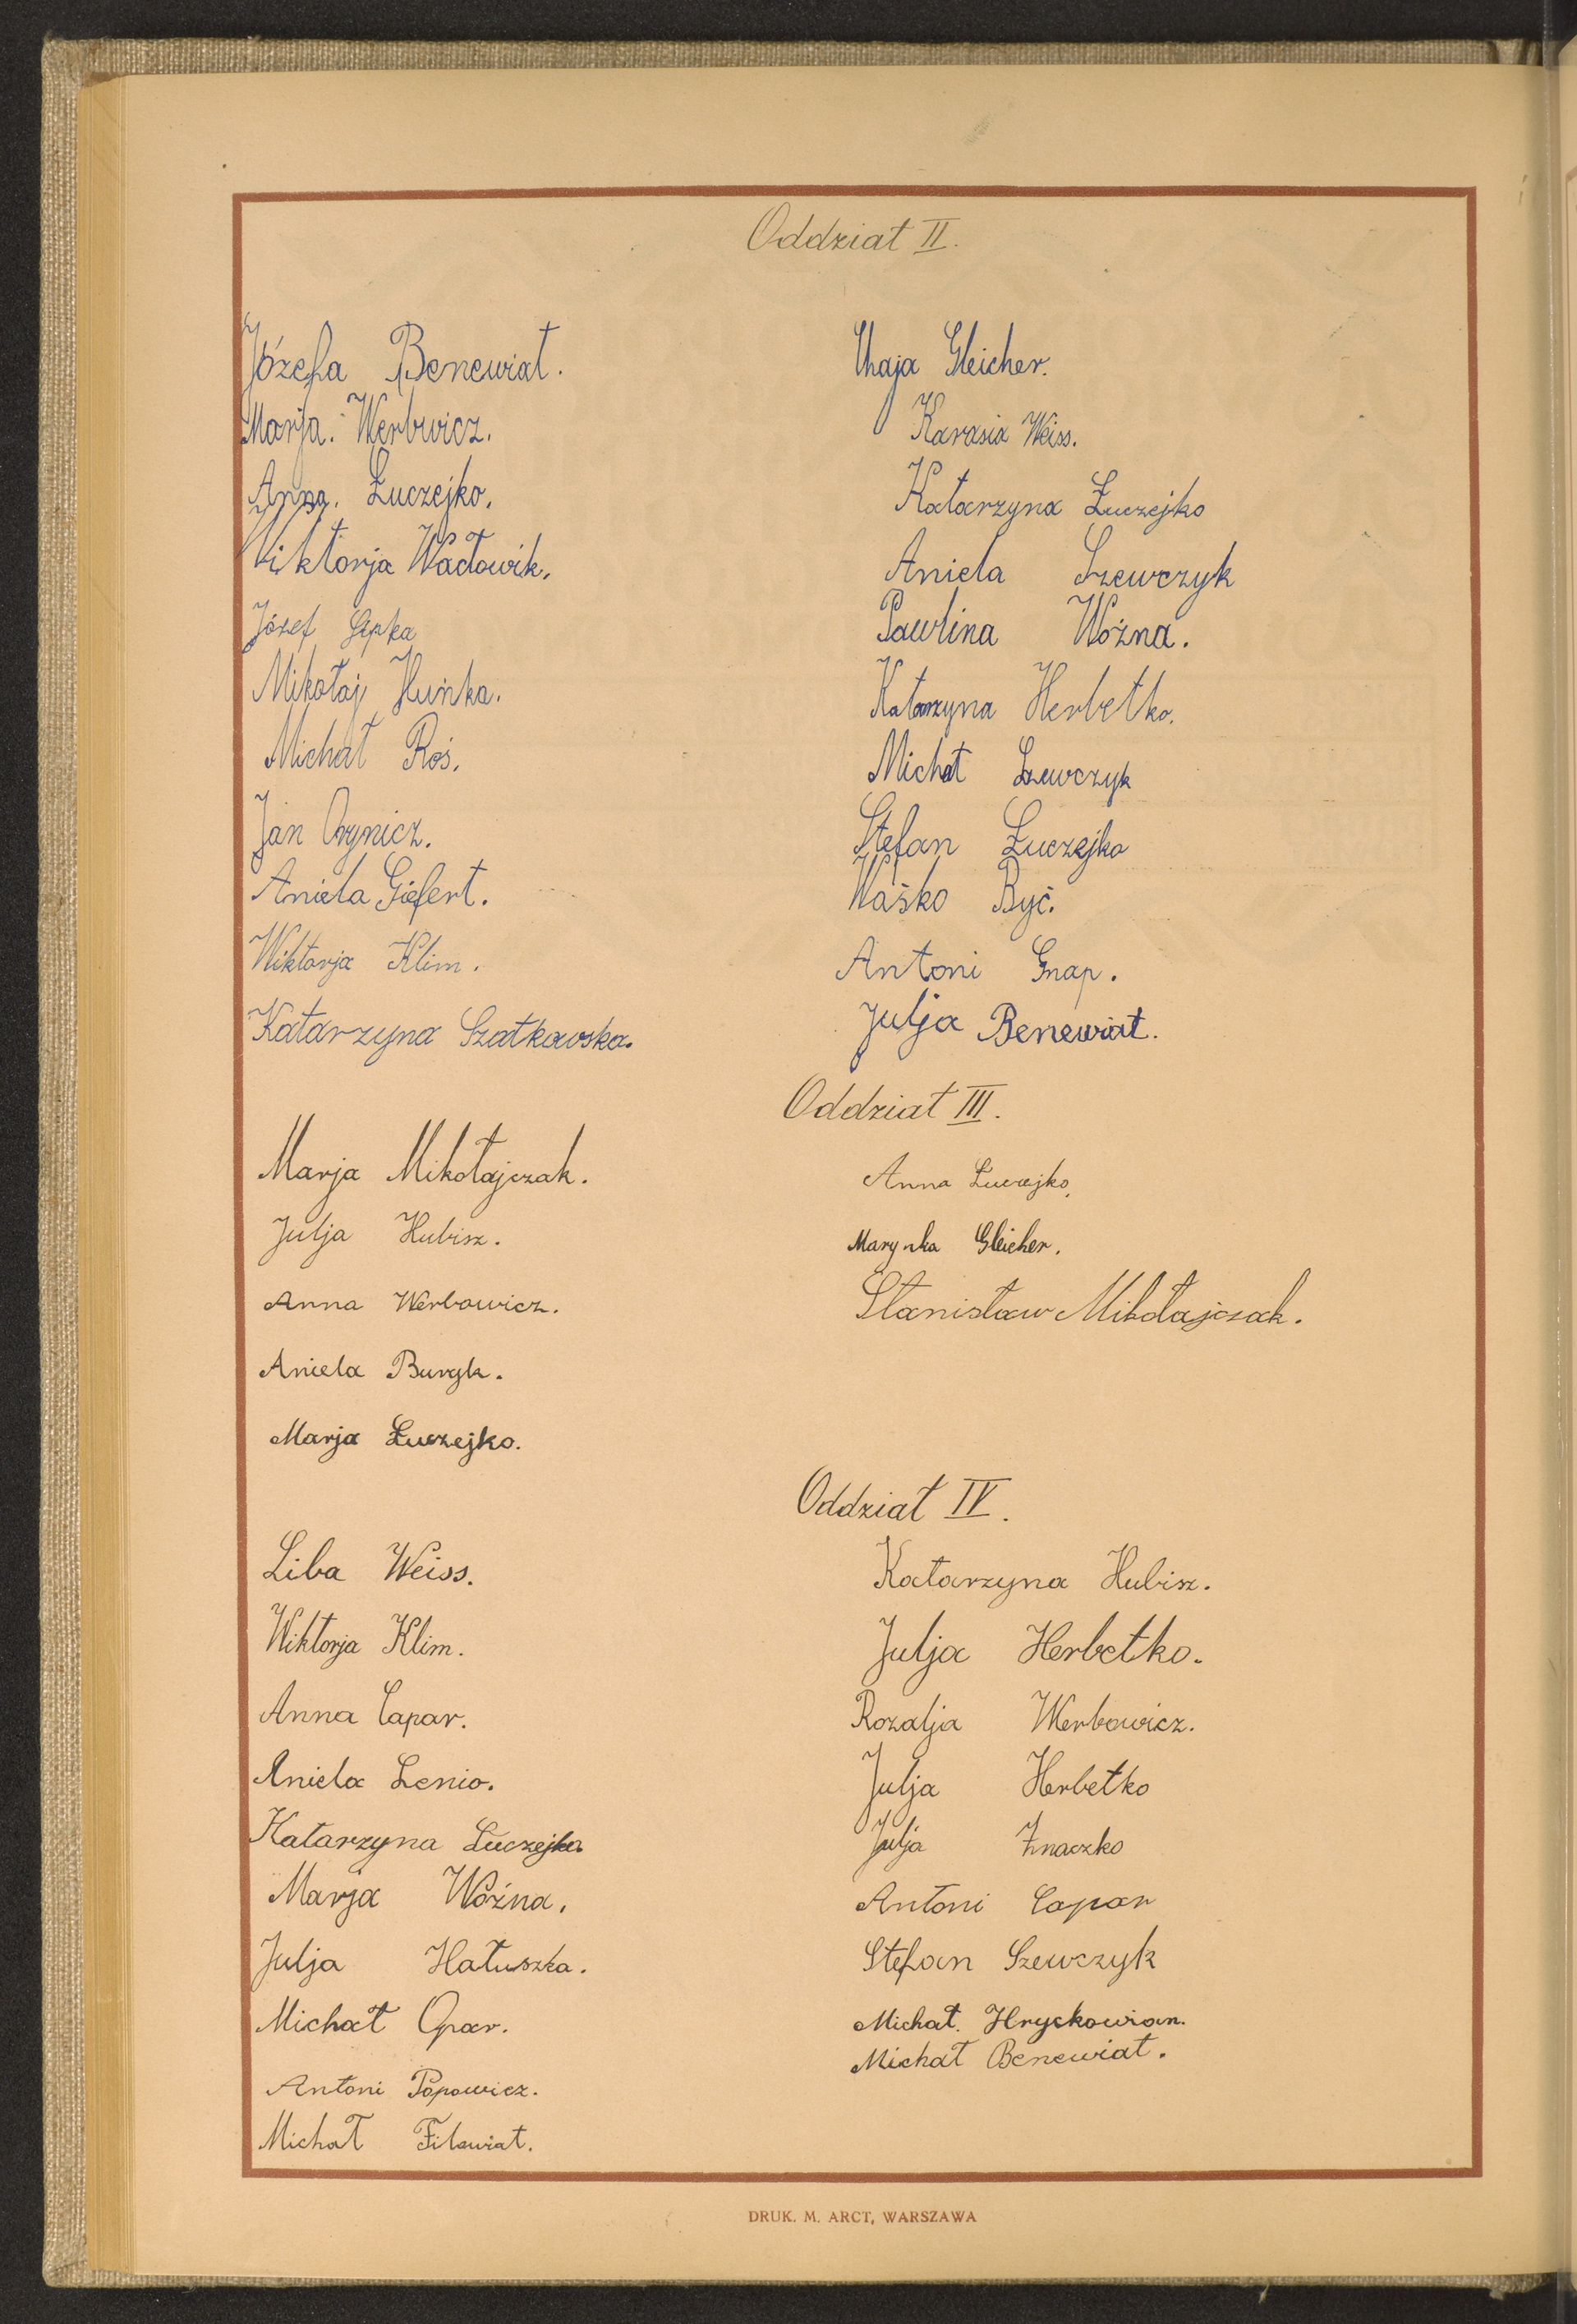 Oddział II.
Józefa Benewiat.
Marja. Werbwicz.
Anna. Łuczejko.
Wiktorja Wacławik.
Józef Gipka
Mikołaj Huńka.
Michał Roś.
Jan Orynicz.
Aniela Giefert.
Wiktorja Klim.
Katarzyna Szatkowska.
Chaja Gleicher.
Karasia Weiss.
Katarzyna Łuczejko
Aniela Szewczyk
Pawlina Woźna.
Katarzyna Herbetko.
Michał Szewczyk
Stefan Łuczejko
Waśko Być.
Antoni Gnap.
Julja Benewiat.
Oddział III.
Marja Mikołajczak.
Julja Hubisz.
Anna Werbowicz.
Aniela Buryk.
Marja Łuczejko.
Anna Łuczejko.
Marynka Gleicher.
Stanisław Mikołajczak.
Oddział IV.
Liba Weiss.
Wiktorja Klim.
Anna Capar.
Aniela Lenio.
Katarzyna Łuczejko.
Marja Woźna.
Julja Hałuszka.
Michał Opar.
Antoni Popowicz.
Michał Filewiat.
Katarzyna Hubisz.
Julja Herbetko.
Rozalja Werbowicz.
Julja Herbetko
Julja Znaczko
Antoni Capar
Stefan Szewczyk
Michał. Hryckowian.
Michał Benewiat.
DRUK. M. ARCT, WARSZAWA